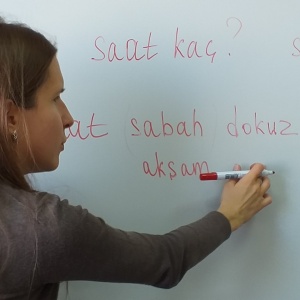 saat kaç?
sabah dokuz
akşam